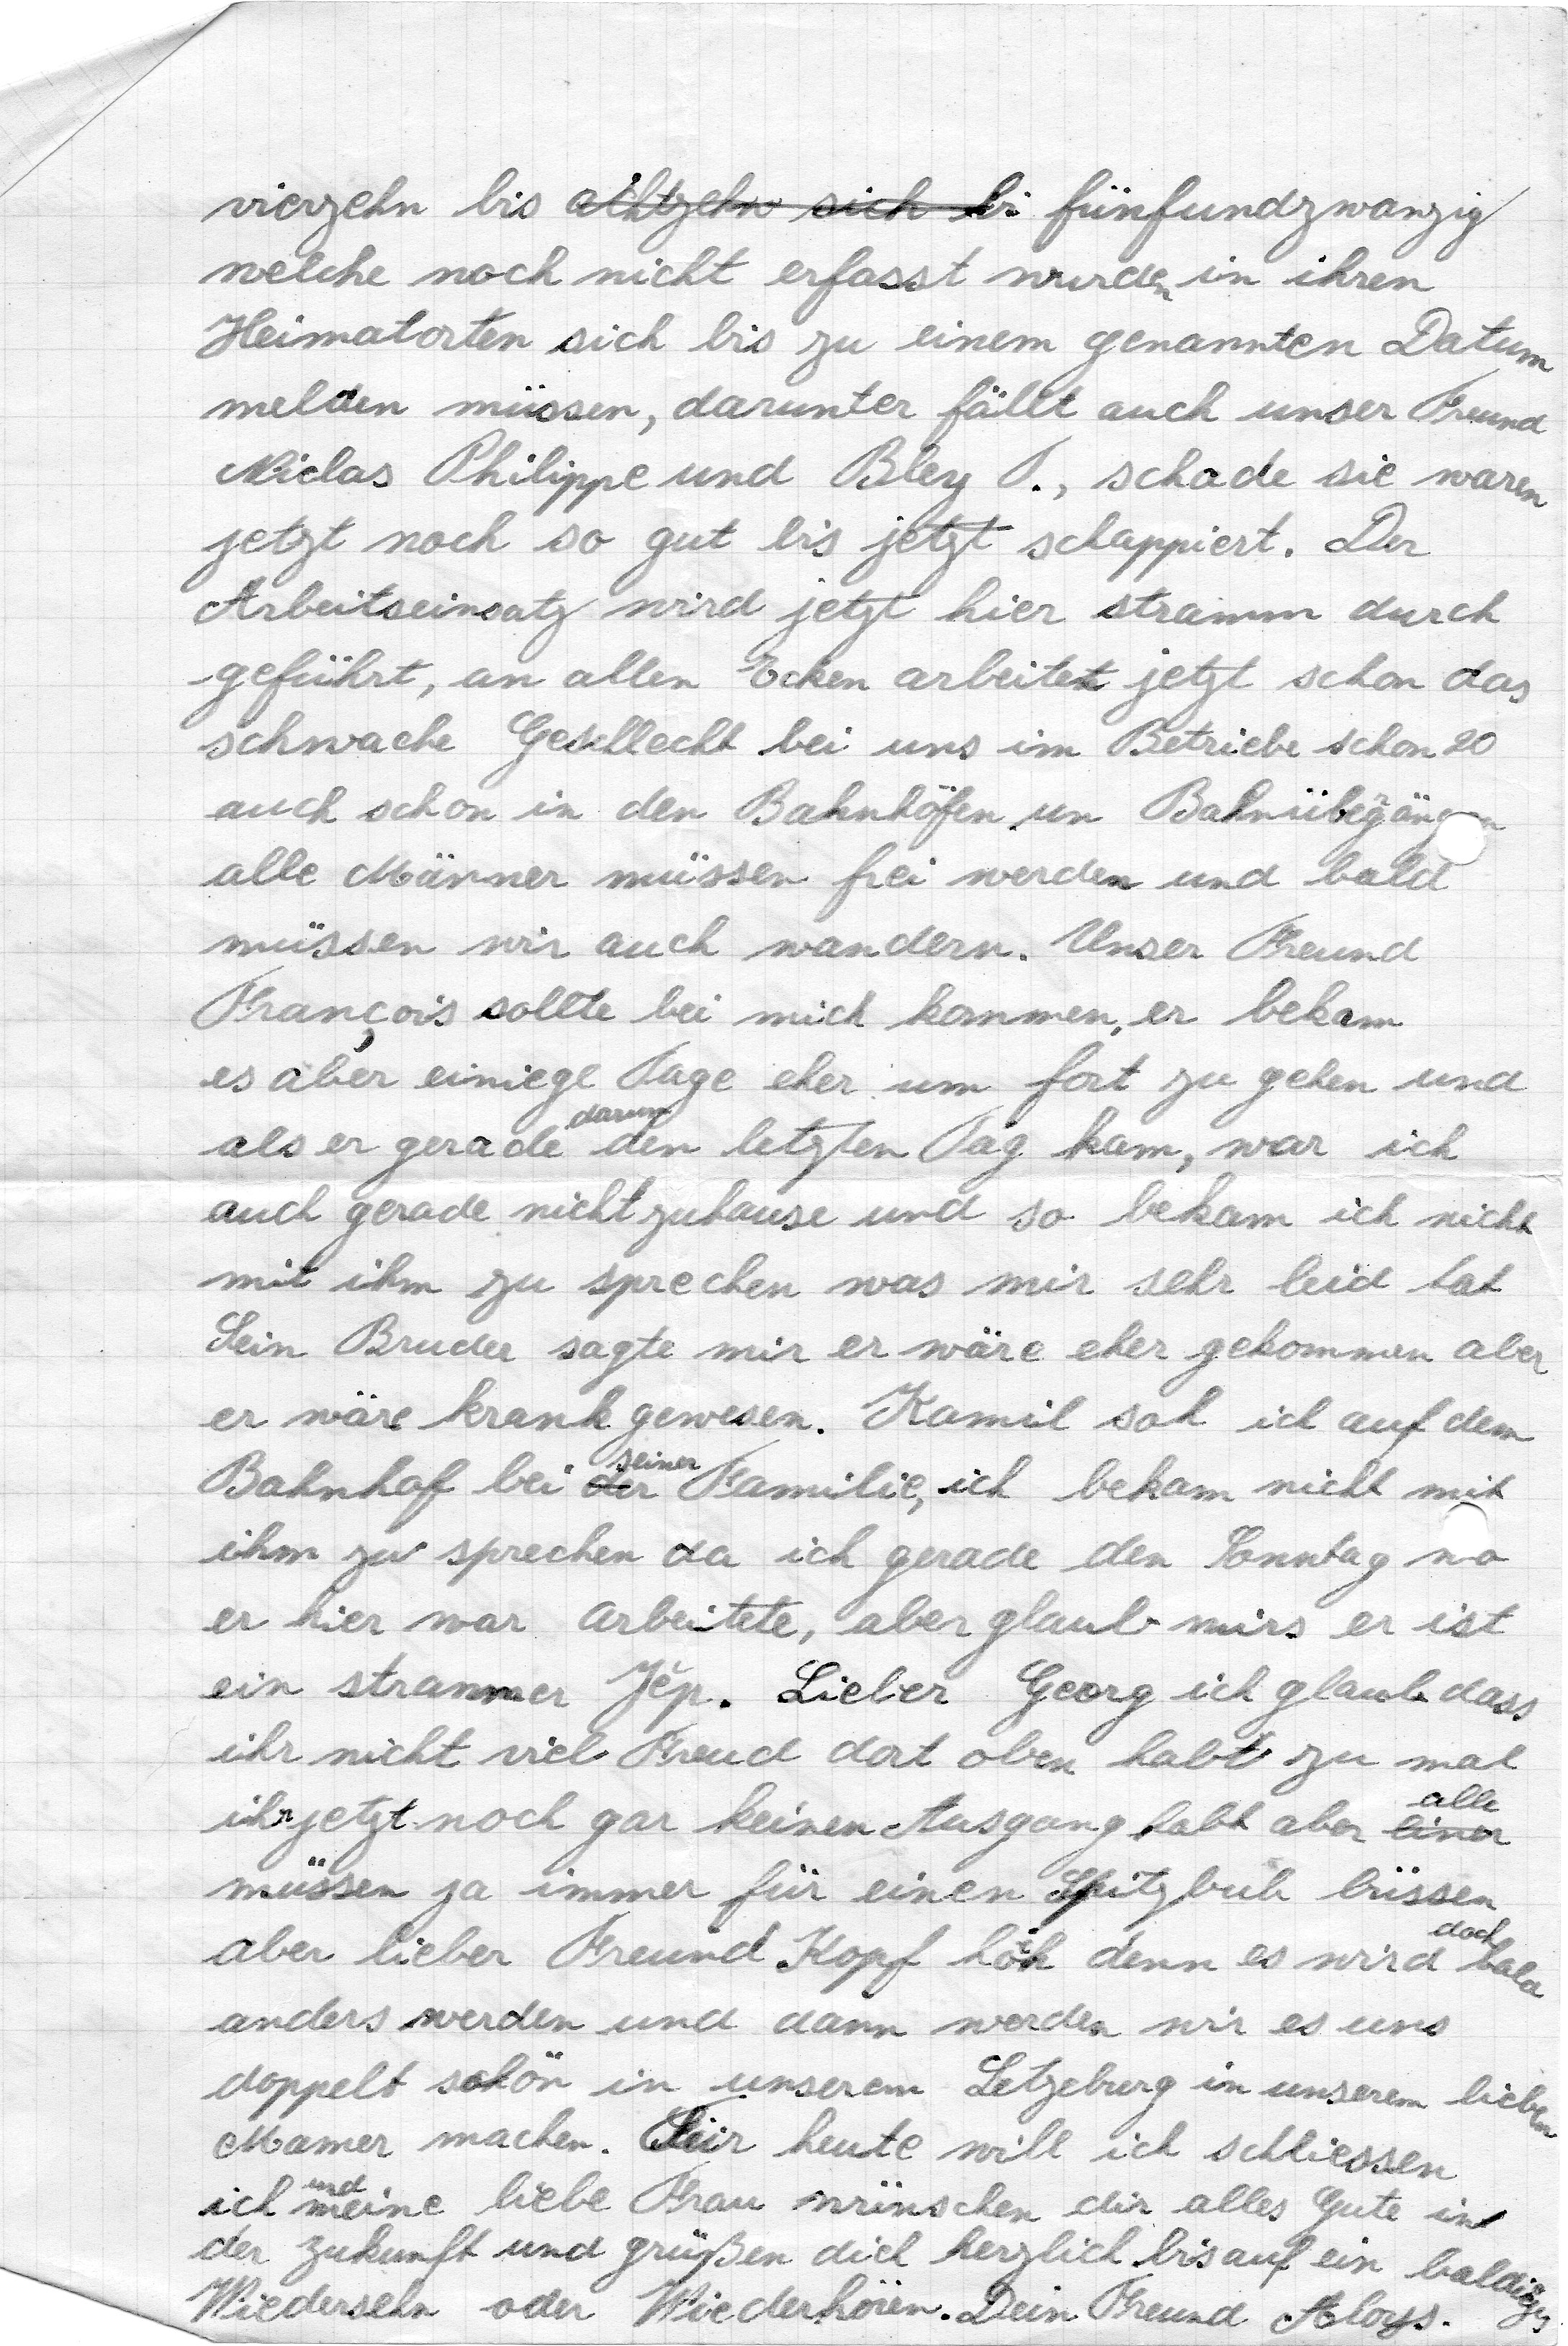 vierzehn bis achtzehn sich bi fünfundzwanzig
welche noch nicht erfasst wurden in ihren
Heimatorten sich bis zu einem genannten Datum
melden müssen, darunter fällt auch unser Freund
Niclas Philippe und Bley P., schade sie waren
jetzt noch so gut bis jetzt schappiert. Der
Arbeitseinsatz wird jetzt hier stramm durch
geführt, an allen Ecken arbeitet jetzt schon das
schwache Geschlecht bei uns im Betriebe schon 20
auch schon in den Bahnhöfen un Bahnübergängen
alle Männer müssen frei werden und bald
müssen wir auch wandern. Unser Freund
François sollte bei mich kommen, er bekam
es aber einiege Tage eher um fort zu gehen und
als er gerade darum den letzten Tag kam, war ich
auch gerade nicht zuhause und so bekam ich nicht
mit ihm zu sprechen was mir sehr leid tat
Sein Bruder sagte mir er wäre eher gekommen aber
er wäre krank gewesen. Kamil sah ich auf dem
Bahnhof bei der seiner Familie, ich bekam nicht mit
ihm zu sprechen da ich gerade den Sonntag wo
er hier war arbeitete, aber glaub mirs er ist
ein strammer Jĕp. Lieber Georg ich glaub dass
ihr nicht viel Freud dort oben habt zu mal
ihr jetzt noch gar keinen Ausgang habt aber einer alle
müssen ja immer für einen Spitzbub büssen
aber lieber Freund Kopf höh denn es wird doch bald
anders werden und dann werden wir es uns
doppelt schön in unserem Letzeburg in unserem lieben
Mamer machen. Für heute will ich schliessen
ich und meine liebe Frau wünschen dir alles Gute in
der Zukunft und grüßen dich herzlich bis auf ein baldiges
Wiedersehn oder Wiederhören. Dein Freund Aloys.